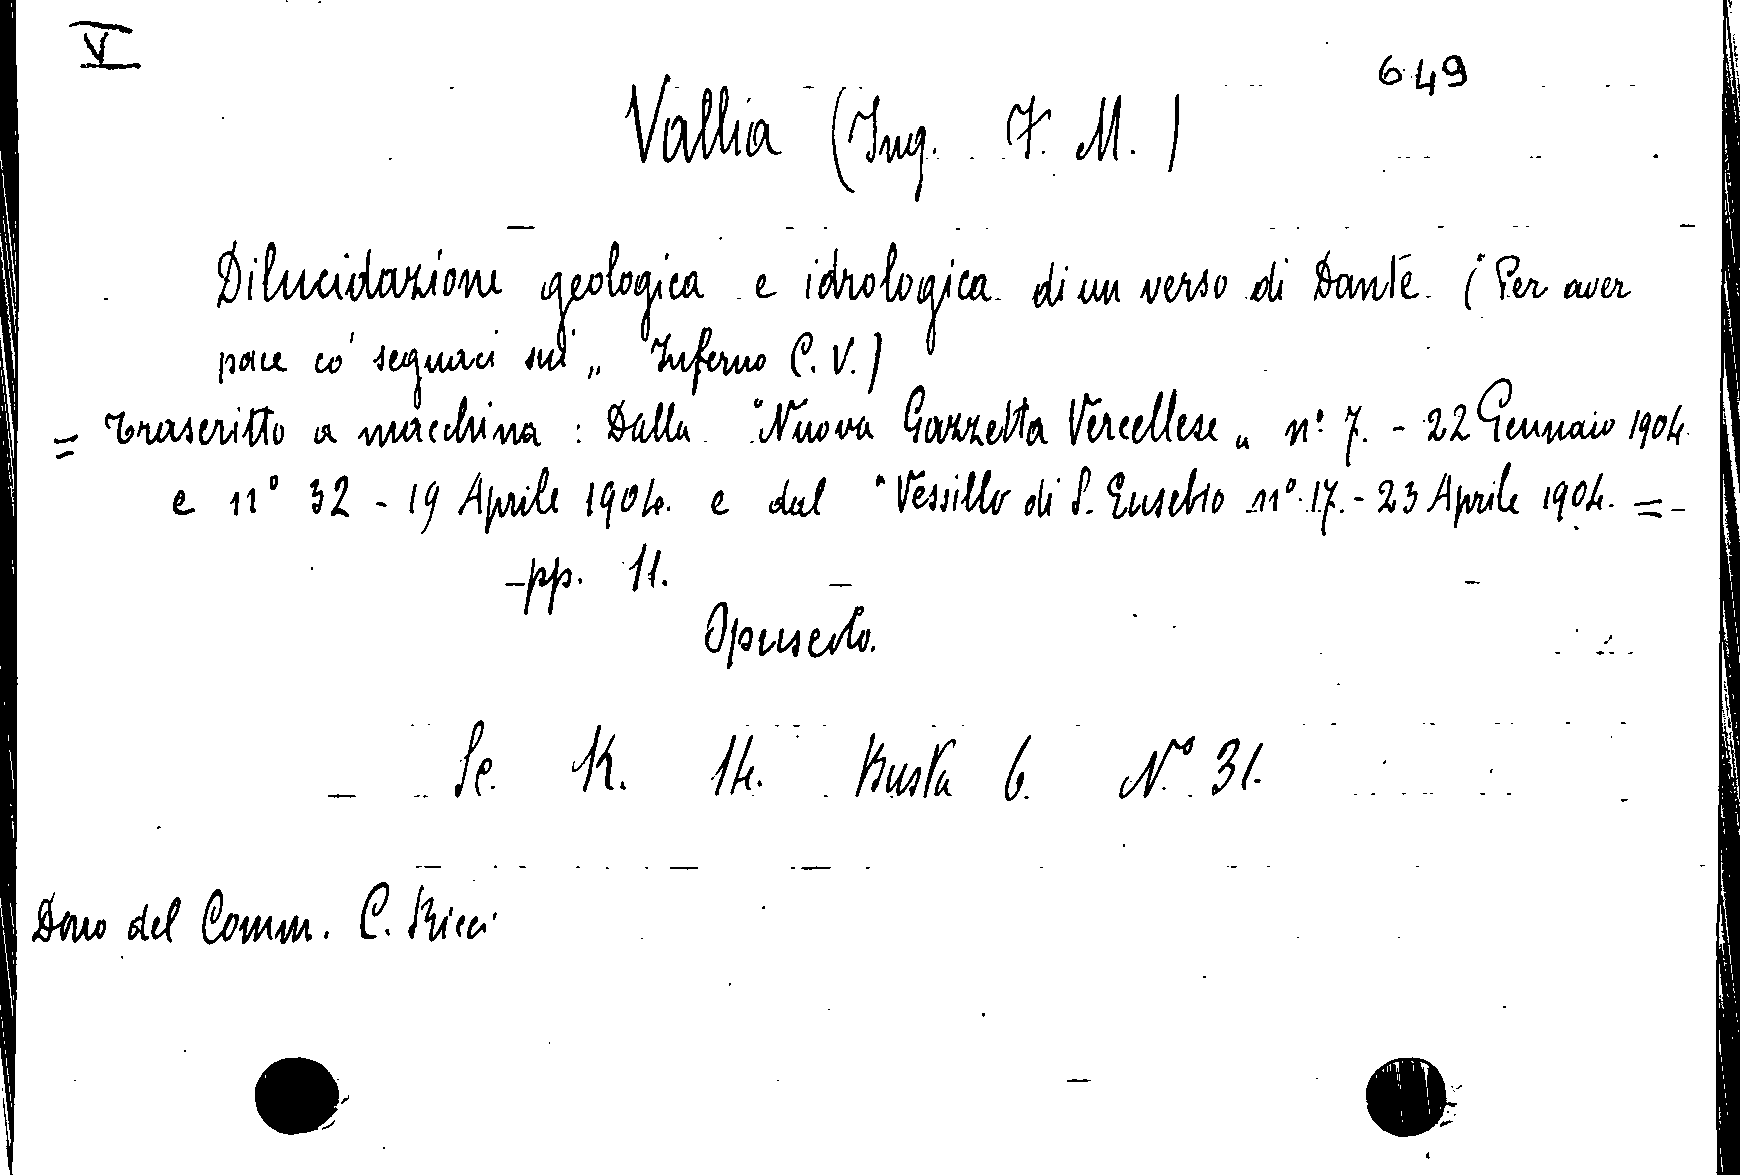 V
649
Vallia (Ing. F. M.)
Dilucidazione geologica e idrologica di un verso di Dante. ("Per aver
pace co' seguaci sui„ Inferno C. V.)
= trascritto a macchina: Dalla "Nuova Gazzetta Vercellese„ n° 7. - 22 Gennaio 1904
e n° 32 - 19 Aprile 1904. e dal "Vessillo di S. Eusebio n° 17. - 23 Aprile 1904. =
pp. 11.
Opuscolo.
Sc. K. 14. Busta 6. N° 31.
Dono del Comm. C. Ricci